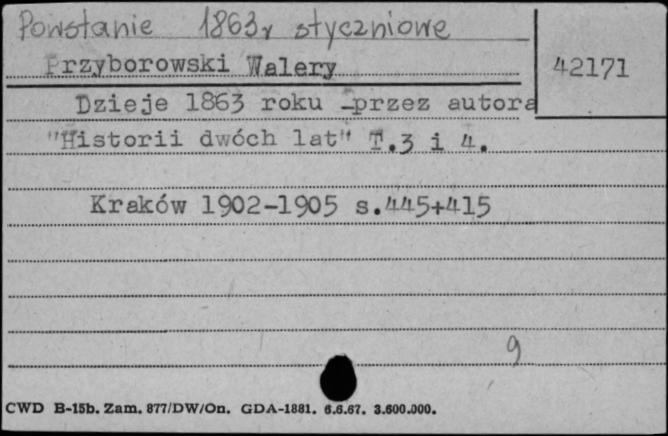 Powstanie 1863r styczniowe
Przyborowski Walery
42171
Dzieje 1863 roku -przez autora
"Historii dwóch lat" T.3 i 4.
Kraków 1902-1905 s.445+415
9
CWD B-15b. Zam. 877/DW/On. GDA-1881. 6.6.67. 3.600.000.